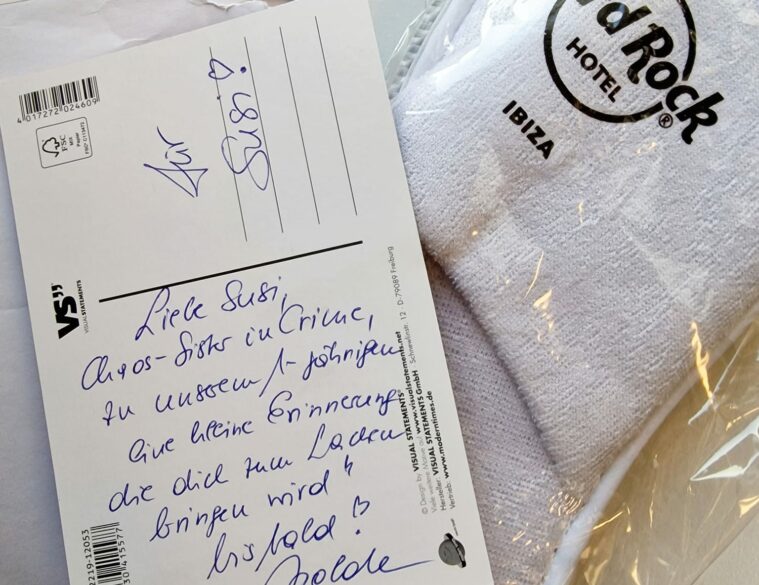 4 017272 024609
FSC
MIX
Papier
für
Susi!
VS"
VISUAL STATEMENTS
Liebe Susi,
Chaos-Sister in Crime,
zu unserem 1-jährigen
eine kleine Erinnerung
die dich zum Lachen
bringen wird"
bis bald!
Isolde
© Design by VISUAL STATEMENTS®
Viele weitere Motive auf www.visualstatements.net
Hersteller: VISUAL STATEMENTS GmbH · Schnewlinstr. 12 · D-79089 Freiburg
Vertrieb: www.moderntimes.de
2219-12053
d Rock
HOTEL
®
IBIZA